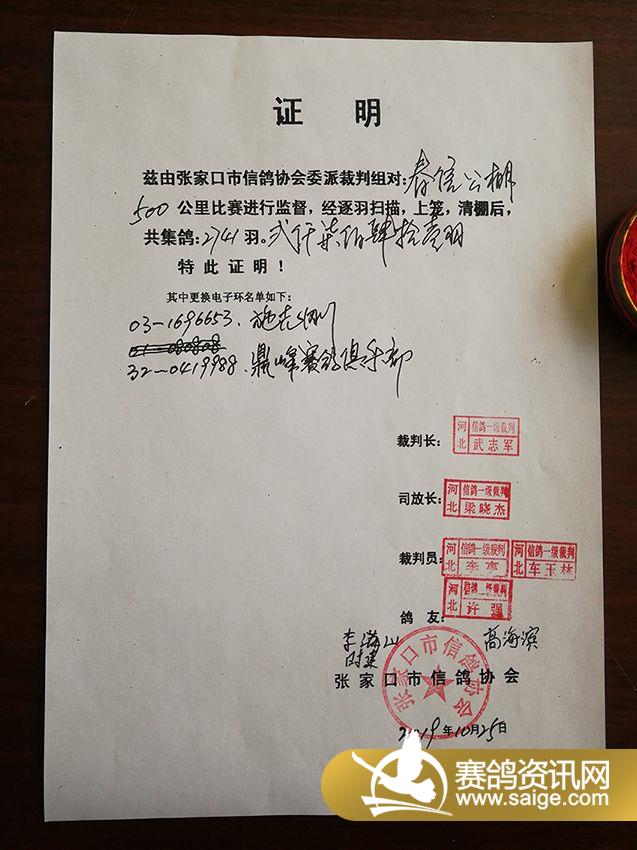 证 明
兹由张家口市信鸽协会委派裁判组对:春信公棚
500公里比赛进行监督,经逐羽扫描,上笼,清棚后,
共集鸽:2741羽。弍仟柒佰肆拾壹羽
特此证明!
其中更换电子环名单如下:
03-1696653.
32-0419988.鼎峰赛鸽俱乐部
裁判长:
河北 信鸽一级裁判 武志军
司放长:
河北 信鸽一级裁判 梁晓杰
裁判员:
河北 信鸽一级裁判
河北 信鸽一级裁判 车玉林
河北 信鸽一级裁判 许强
鸽 友:
高海滨
张家口市信鸽协会
张家口市信鸽协会
2019年10月25日
赛鸽资讯网
www.saige.com